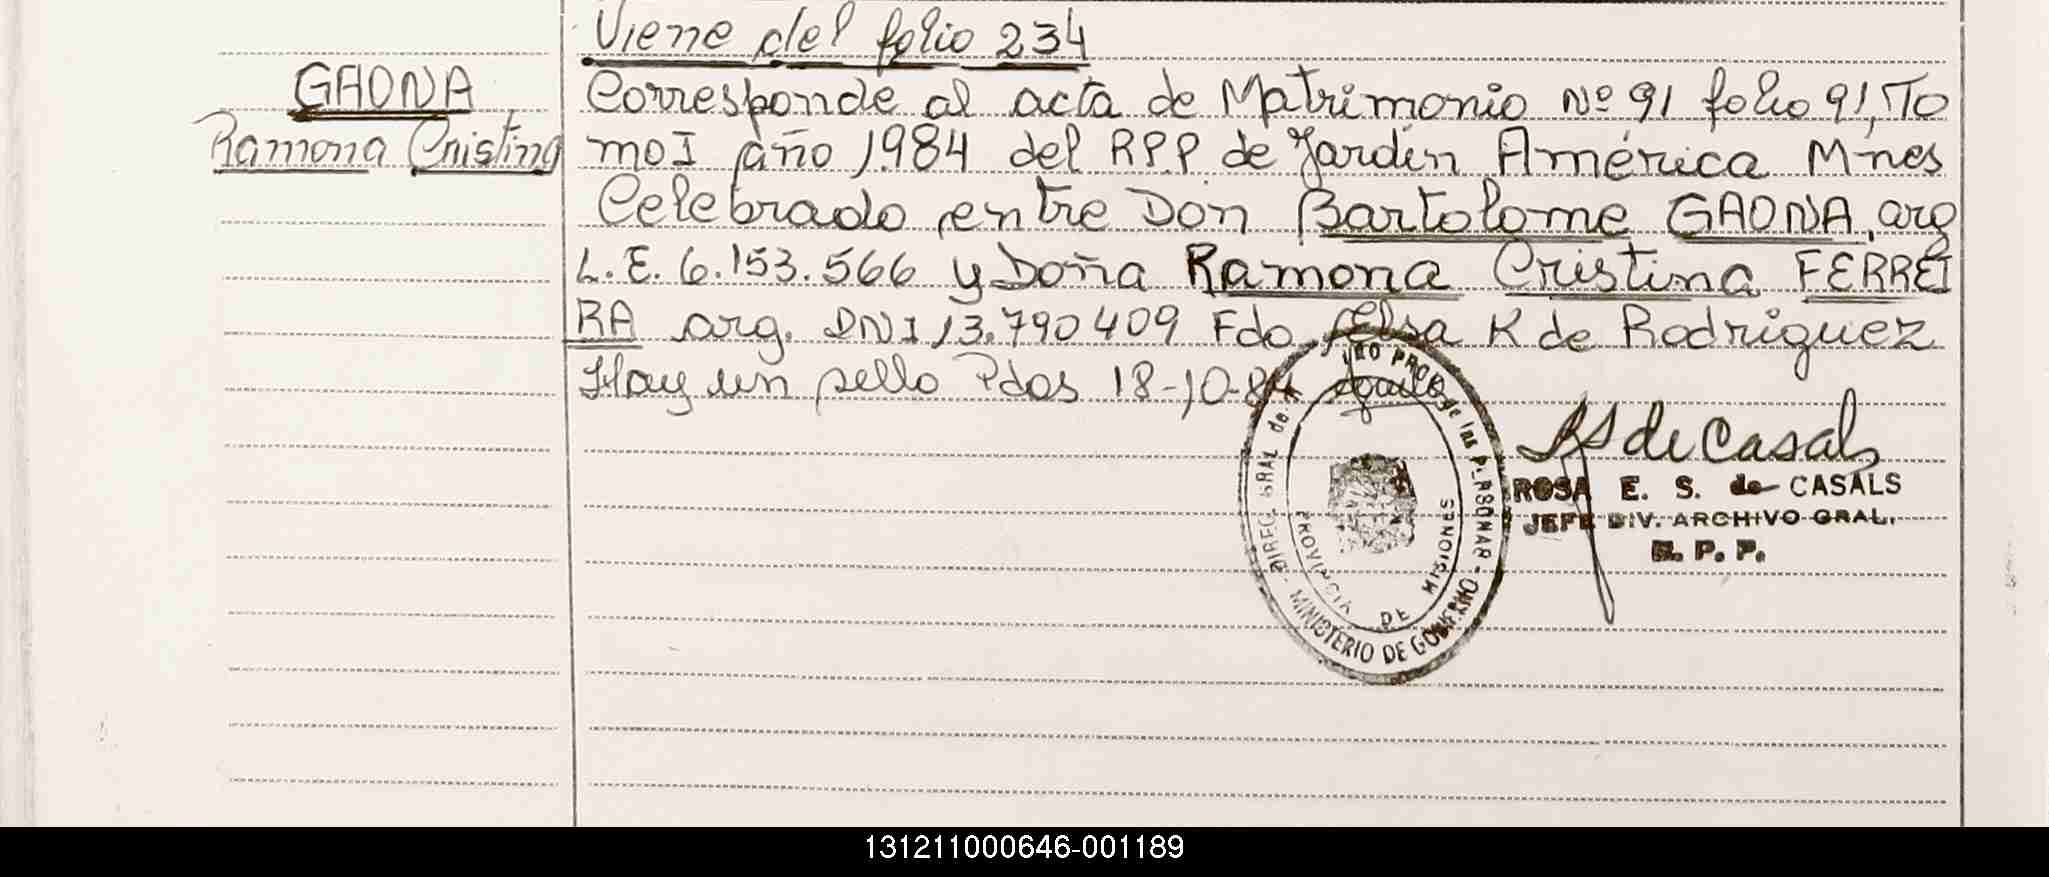 Viene del folio 234
GAONA
Ramona Cristina
Corresponde al acta de Matrimonio Nº 91 folio 91, To
mo I año 1984 del RPP de Jardín América Mnes
Celebrado entre Don Bartolome GAONA, arg
L.E. 6.153.566 y Doña Ramona Cristina FERREI
RA arg. DNI 13.790409 Fdo. Elsa K de Rodriguez
Hay un sello Pdos 18-10-84
RS de Casals
ROSA E. S. de CASALS
JEFE DIV. ARCHIVO GRAL.
R. P. P.
DIREC. GRAL de PROV. de las PERSONAS - MINISTERIO DE GOBIERNO -
PROVINCIA DE MISIONES
131211000646-001189